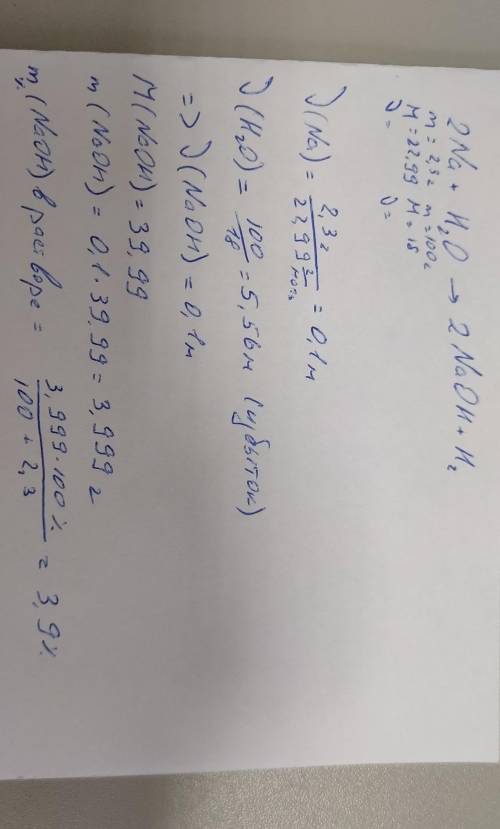 2Na + H₂O → 2NaOH + H₂
m = 2,3г m = 100г
M = 22,99 M = 18
ν =
ν(Na) = 2,3г / 22,99 г/моль = 0,1м
ν(H₂O) = 100 / 18 = 5,56м (избыток)
=> ν(NaOH) = 0,1м
M(NaOH) = 39,99
m(NaOH) = 0,1 · 39,99 = 3,999г
m%(NaOH) в растворе = 3,999 · 100% / 100 + 2,3 = 3,9%